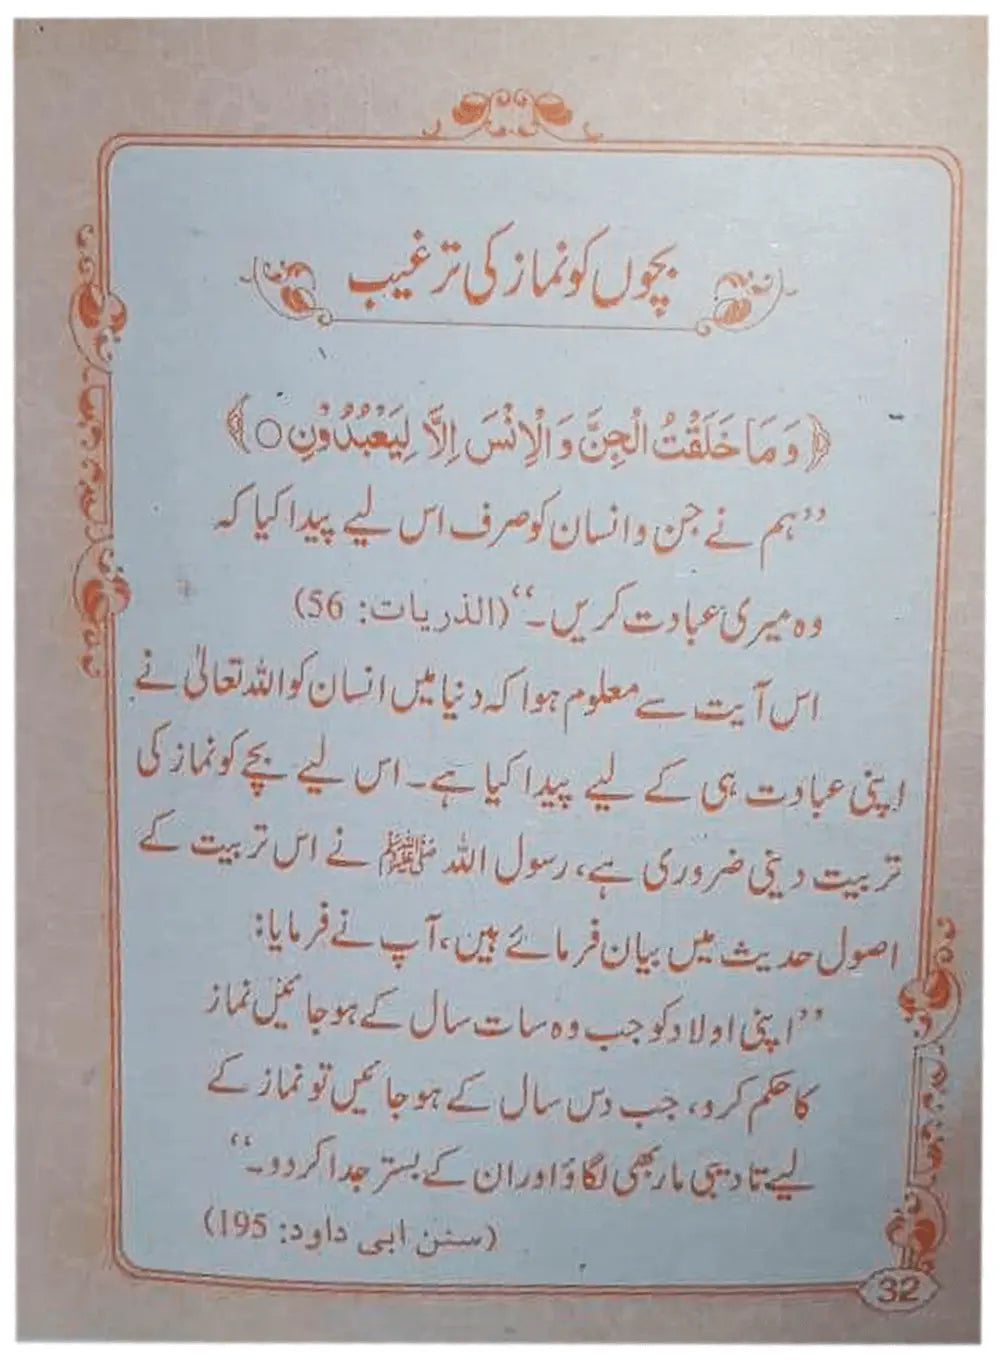 بچوں کو نماز کی ترغیب
﴿وَمَا خَلَقْتُ الْجِنَّ وَالْاِنْسَ اِلَّا لِيَعْبُدُوْنِ○﴾
”ہم نے جن و انسان کو صرف اس لیے پیدا کیا کہ
وہ میری عبادت کریں۔“ (الذریات: 56)
اس آیت سے معلوم ہوا کہ دنیا میں انسان کو اللہ تعالیٰ نے
اپنی عبادت ہی کے لیے پیدا کیا ہے۔ اس لیے بچے کو نماز کی
تربیت دینی ضروری ہے، رسول اللہ ﷺ نے اس تربیت کے
اصول حدیث میں بیان فرمائے ہیں، آپ نے فرمایا:
”اپنی اولاد کو جب وہ سات سال کے ہو جائیں نماز
کا حکم کرو، جب دس سال کے ہو جائیں تو نماز کے
لیے تادیبی مار بھی لگاؤ اور ان کے بستر جدا کر دو۔“
(سنن ابی داود: 195)
32